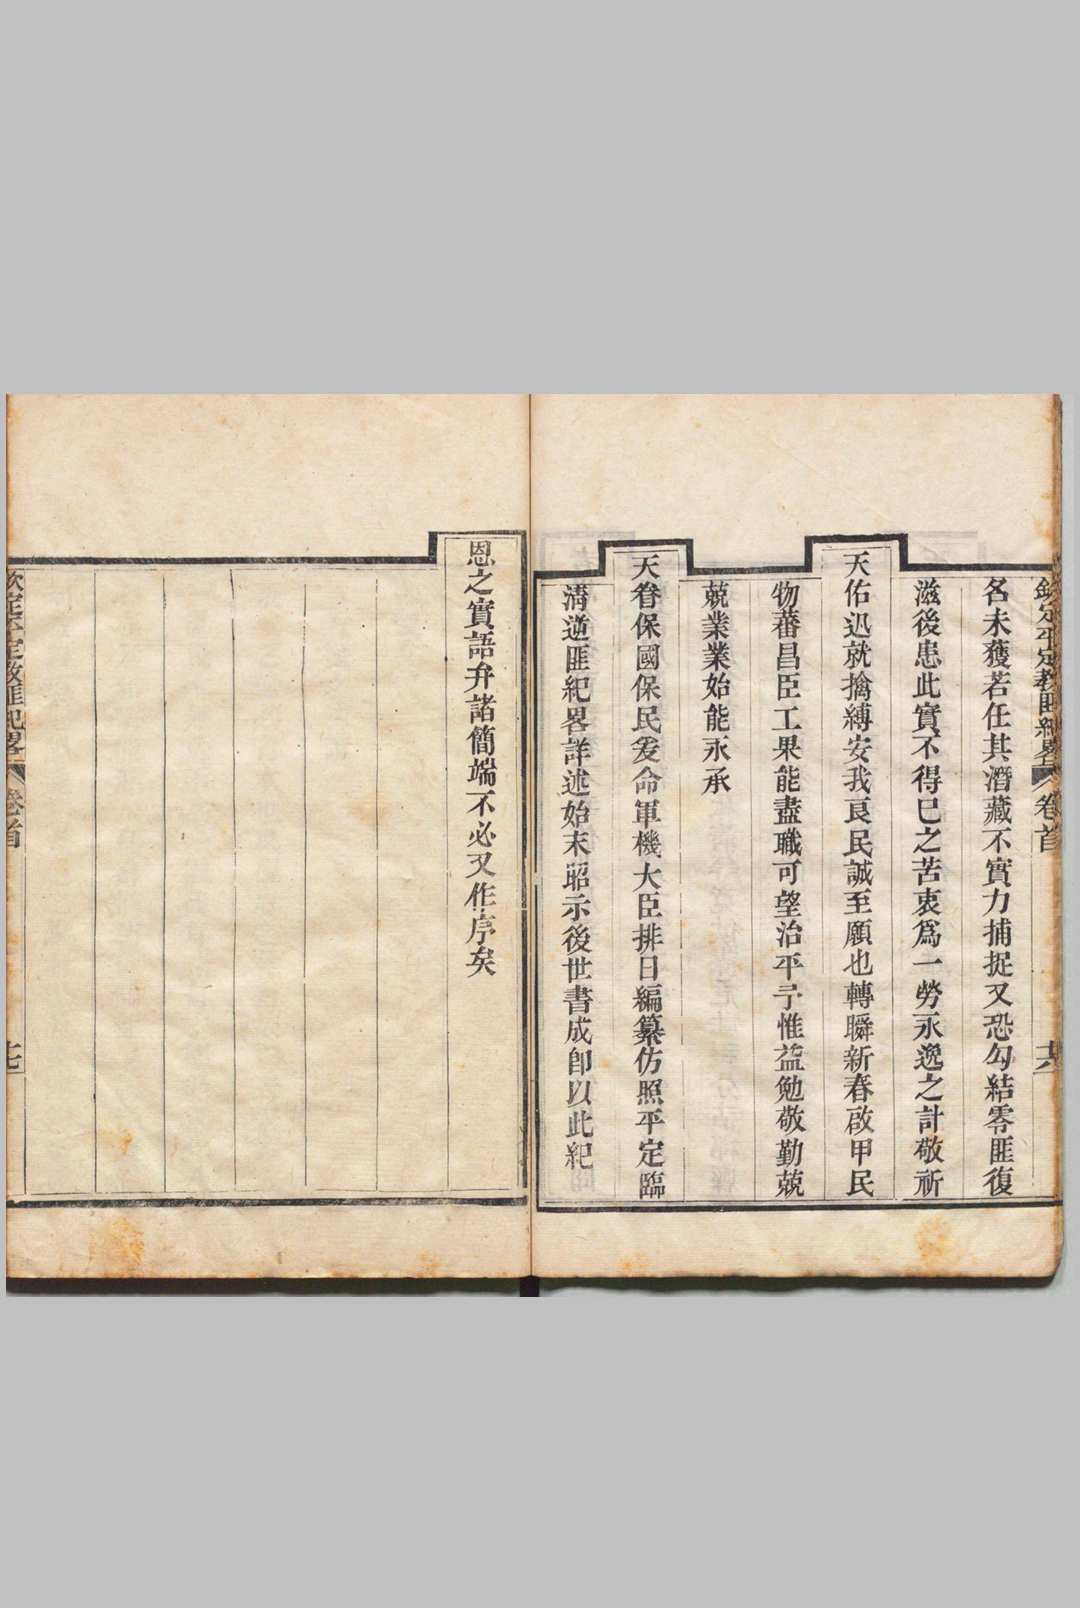 欽定平定教匪紀畧
卷首
十六
名未獲若任其潛藏不實力捕捉又恐勾結零匪復
滋後患此實不得已之苦衷爲一勞永逸之計敬祈
天佑迅就擒縛安我良民誠至願也轉瞬新春啟甲民
物蕃昌臣工果能盡職可望治平予惟益勉敬勤兢
兢業業始能永承
天眷保國保民爰命軍機大臣排日編纂仿照平定臨
清逆匪紀畧詳述始末昭示後世書成卽以此紀
恩之實語弁諸簡端不必又作序矣
欽定平定教匪紀畧
卷首